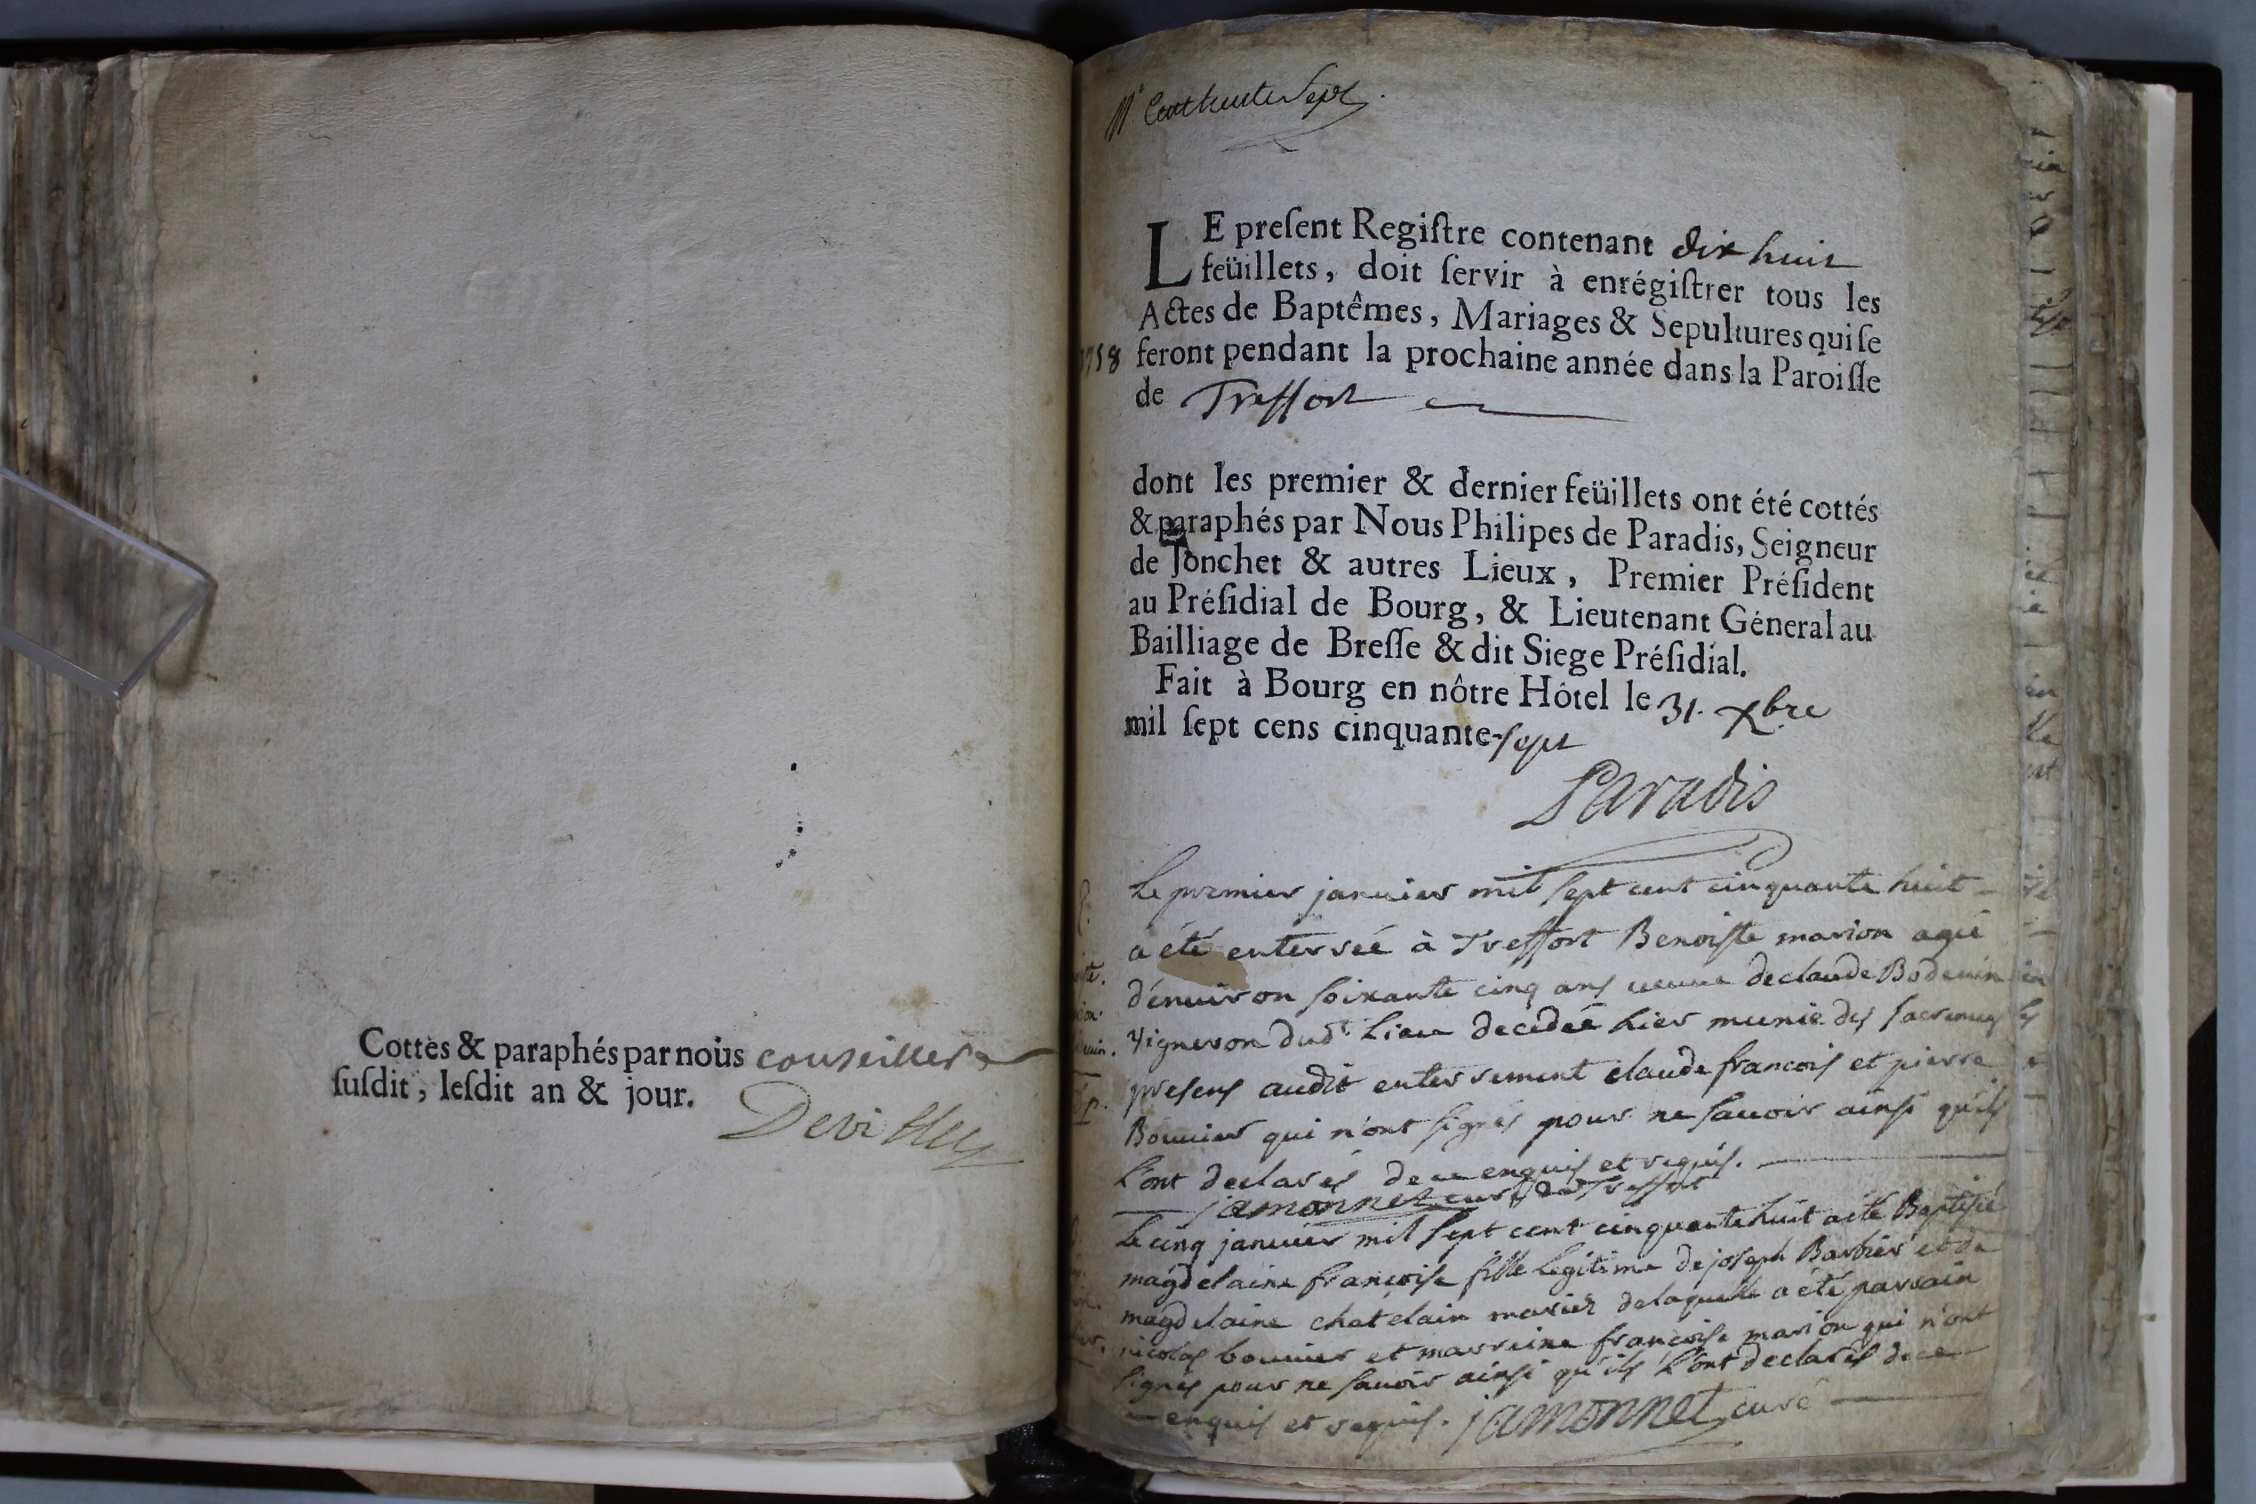 Cottès & paraphés par nous conseiller
ſuſdit, leſdit an & jour.
Devilley
LE preſent Regiſtre contenant dix huit
feüillets, doit ſervir à enrégiſtrer tous les
Actes de Baptêmes, Mariages & Sepultures qui ſe
1758 feront pendant la prochaine année dans la Paroiſſe
de Treffort
dont les premier & dernier feüillets ont été cottés
& paraphés par Nous Philipes de Paradis, Seigneur
de Jonchet & autres Lieux, Premier Préſident
au Préſidial de Bourg, & Lieutenant Géneral au
Bailliage de Breſſe & dit Siege Préſidial.
Fait à Bourg en nôtre Hôtel le 31. Xbre
mil ſept cens cinquante-sept
Paradis
Le premier januier mil sept cent cinquante huit
a été enterreé à Treffort Benoiste marion ageé
d'enuiron soixante cinq ans ueuue de claude Bodeuin
Vigneron dud. Lieu decedée hier munie des sacremens
presens audit enterrement claude francois et pierre
Bouuier qui n'ont signés pour ne sauoir ainsi qu'ils
L'ont declarés de ce enquis et requis.
jamonnet curé de Treffort
Le cinq januier mil sept cent cinquante huit a été Baptiseé
magdelaine françoise fille legitime de joseph Barbier et de
magdelaine chatelain mariez de laquelle a été parrain
nicolas bouuier et marreine françoise marion qui n'ont
signés pour ne sauoir ainsi qu'ils L'ont declarés de ce
enquis et requis. jamonnet curé